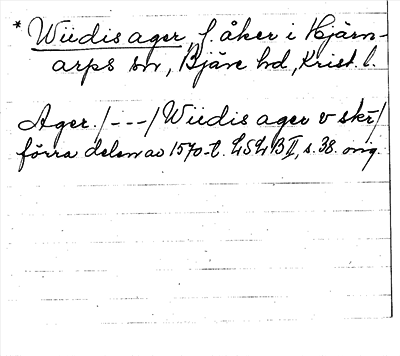 * Wiidis ager, f. åker i Hjärn-
arps sn, Bjäre hd, Krist. l.
Ager. /---/ Wiidis ager v skr /
förra delen av 1570-t. LSLB II, s. 38. orig.